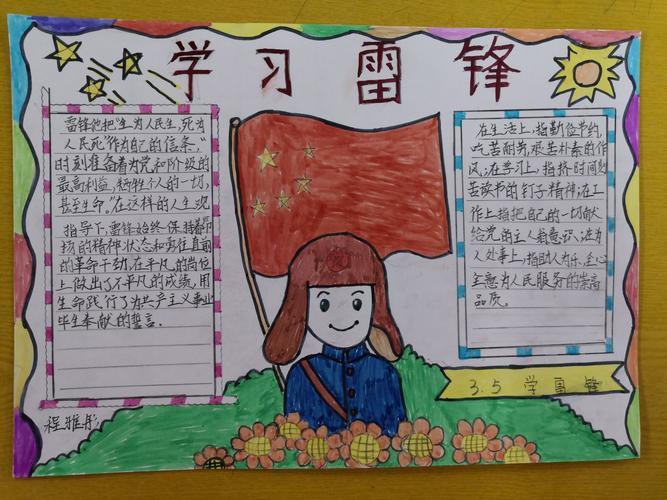 学习雷锋
雷锋他把“生为人民生，死为
人民死”作为自己的信条。“
时刻准备着为党和阶级的
最高利益，牺牲个人的一切，
甚至生命。”在这样的人生观
指导下，雷锋始终保持着昂
扬的精神状态和勇往直前
的革命干劲，在平凡的岗位
上做出了不平凡的成绩，用
生命践行了为共产主义事业
毕生奉献的誓言。
在生活上，指勤俭节约，
吃苦耐劳，艰苦朴素的作
风；在学习上，指挤时间刻
苦读书的钉子精神；在工
作上指把自己的一切献
给党的主人翁意识；在为
人处事上，指助人为乐，全心
全意为人民服务的崇高
品质。
3.5 学雷锋
程雅彤